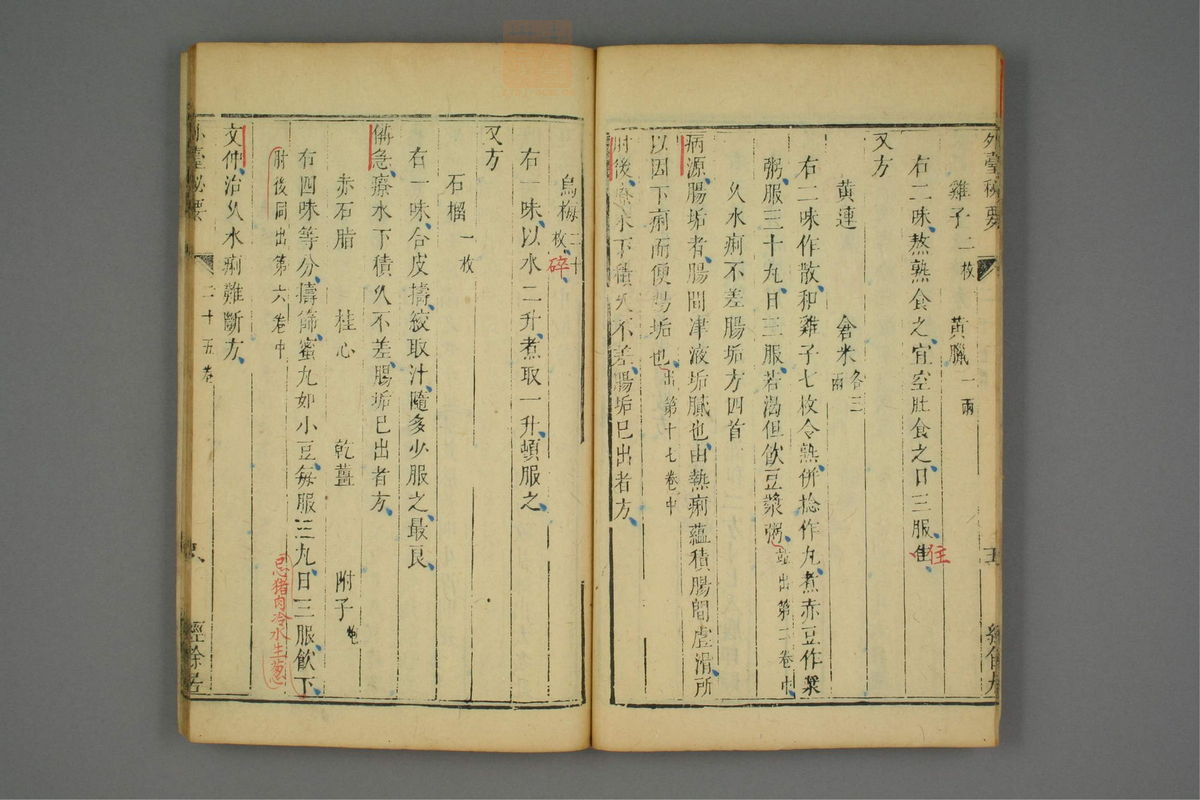 外臺秘要
雞子二枚 黃臘一兩
右二味熬熟食之宜空肚食之日三服佳
住
又方
黃連 倉米各三兩
右二味作散和雞子七枚令熟併捻作丸煮赤豆作漿
粥服三十丸日三服若渴但飲豆漿粥並出第二卷中
久水痢不差腸垢方四首
病源腸垢者腸間津液垢膩也由熱痢蘊積腸間虛滑所
以因下痢而便腸垢也出第十七卷中
肘後療水下積久不差腸垢已出者方
烏梅二十枚碎
右一味以水二升煮取一升頓服之
又方
石榴一枚
右一味合皮擣絞取汁隨多少服之最良
備急療水下積久不差腸垢已出者方
赤石脂 桂心 乾薑 附子炮
右四味等分擣篩蜜丸如小豆每服三丸日三服飲下
肘後同出第六卷中
忌猪肉冷水生葱
文仲治久水痢難斷方
外臺秘要 二十五卷 經餘居